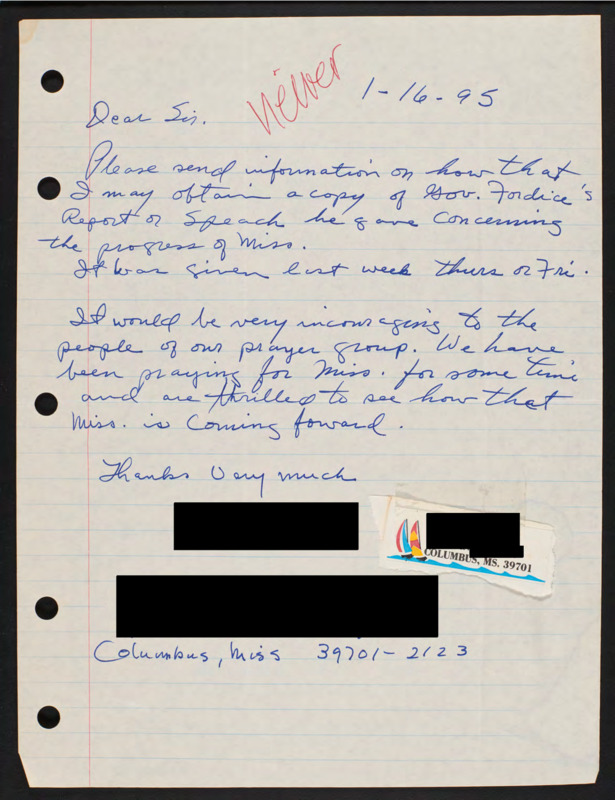 1-16-95
Dear Sir.
Please send information on how that
I may obtain a copy of Gov. Fordice's
Report or Speach he gave concerning
the progress of Miss.
It was given last week Thurs or Fri.
It would be very incouraging to the
people of our prayer group. We have
been praying for Miss. for some time
and are thrilled to see how that
Miss. is Coming foward.
Thanks Very much
COLUMBUS, MS. 39701
Columbus, Miss 39701-2123